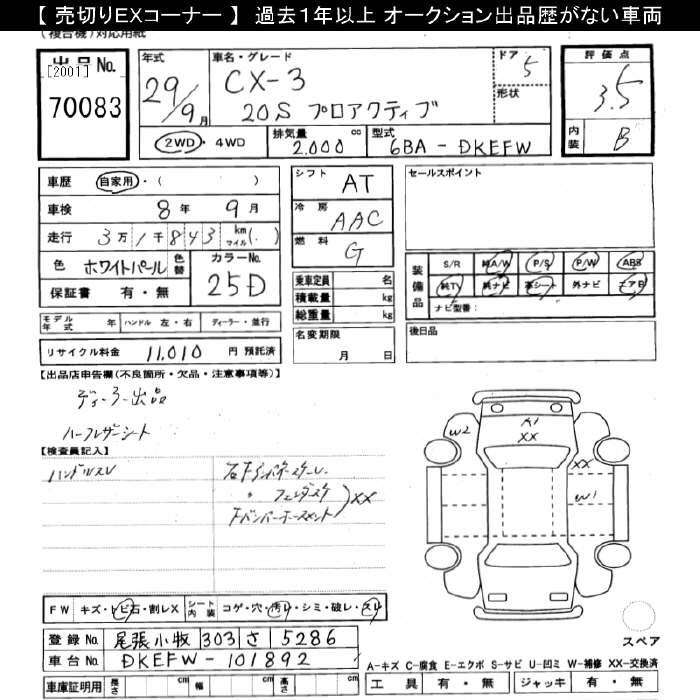 【 売切りEXコーナー 】 過去1年以上 オークション出品歴がない車両
(複合機)対応用紙
出品 No.
[2001]
70083
年式
29/9月
車名・グレード
CX-3
20S プロアクティブ
ドア
5
形状
評価点
3.5
内装
B
2WD・4WD
排気量
2,000 cc
型式
6BA - DKEFW
車歴 自家用・( )
車検 8年 9月
走行 3万1千843 km マイル( . )
色 ホワイトパール 色替
カラーNo.
25D
保証書 有・無
シフト AT
冷房 AAC
燃料 G
乗車定員 名
積載量 kg
総重量 kg
名変期限
月 日
セールスポイント
装備品
S/R 純A/W P/S P/W ABS
純TV 純ナビ 革シート 外ナビ エアB
ナビ型番:
後日品
モデル年式 年 ハンドル 左・右 ディーラー・並行
リサイクル料金 11,010 円 預託済
【出品店申告欄(不良箇所・欠品・注意事項等)】
ディーラー出品
ハーフレザーシート
【検査員記入】
ハンドルスレ
XX
A1
XX
W2
XX
W1
FW キズ・トビ石・割レX
シート内装 コゲ・穴・汚レ・シミ・破レ・スレ
登録 No. 尾張小牧 303 さ 5286
車台 No. DKEFW-101892
車庫証明用 長さ cm 幅 cm 高さ cm
スペア
A-キズ C-腐食 E-エクボ S-サビ U-凹ミ W-補修 XX-交換済
工具 有・無 ジャッキ 有・無